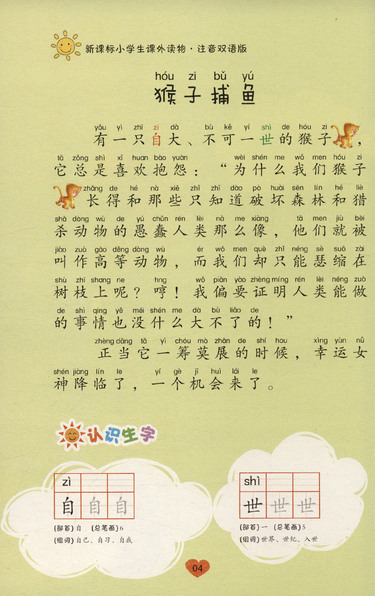 新课标小学生课外读物·注音双语版
hóu zi bǔ yú
猴子捕鱼
yǒu yì zhī zì dà bù kě yí shì de hóu zi
有一只自大、不可一世的猴子，
tā zǒng shì xǐ huan bào yuàn wèi shén me wǒ men hóu zi
它总是喜欢抱怨：“为什么我们猴子
zhǎng de hé nà xiē zhǐ zhī dào pò huài sēn lín hé liè
长得和那些只知道破坏森林和猎
shā dòng wù de yú chǔn rén lèi nà me xiàng tā men jiù bèi
杀动物的愚蠢人类那么像，他们就被
jiào zuò gāo děng dòng wù ér wǒ men què zhǐ néng sè suō zài
叫作高等动物，而我们却只能瑟缩在
shù zhī shang ne hng wǒ piān yào zhèng míng rén lèi néng zuò
树枝上呢？哼！我偏要证明人类能做
de shì qing yě méi shén me dà bù liǎo de
的事情也没什么大不了的！”
zhèng dāng tā yì chóu mò zhǎn de shí hou xìng yùn nǚ
正当它一筹莫展的时候，幸运女
shén jiàng lín le yí gè jī huì lái le
神降临了，一个机会来了。
认识生字
zì
自自自
(部首)自 (总笔画)6
(组词)自己、自习、自我
shì
世世世
(部首)一 (总笔画)5
(组词)世界、世纪、入世
04